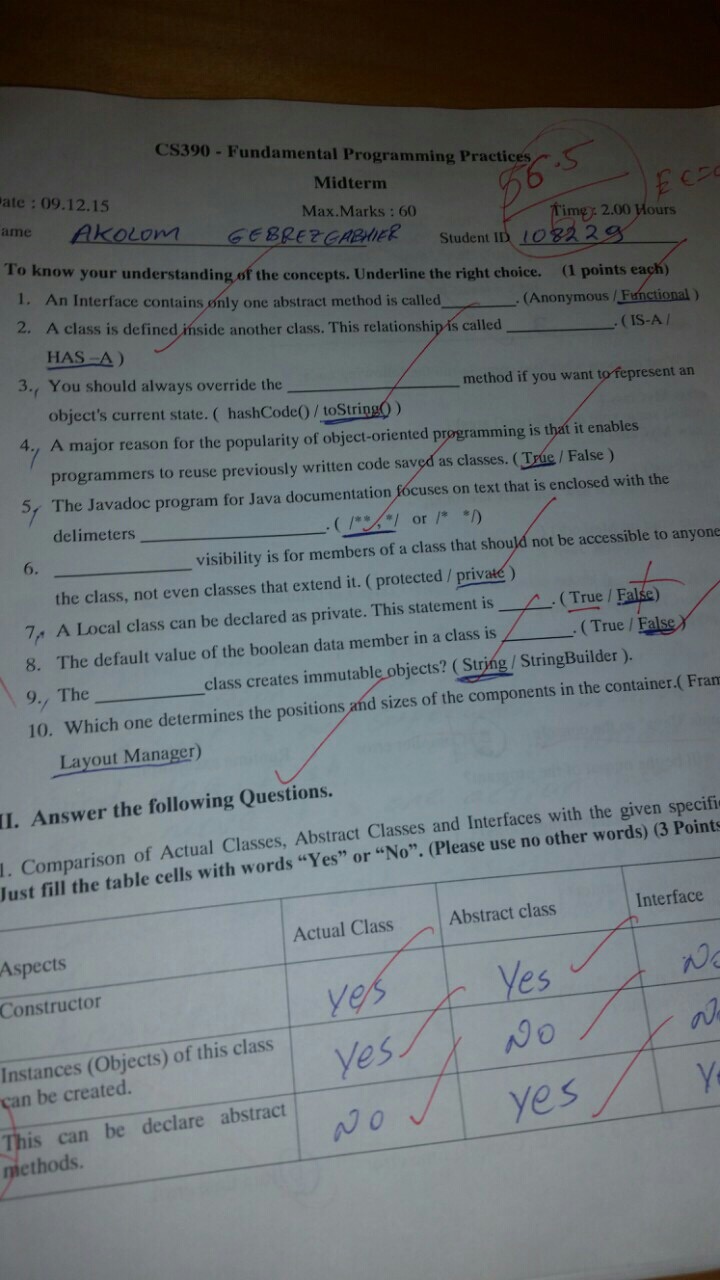 CS390 - Fundamental Programming Practices
Midterm
56.5
ate : 09.12.15 Max.Marks : 60 Time: 2.00 Hours
ame AKOLOM GEBREZGABHIER Student ID 108229
To know your understanding of the concepts. Underline the right choice. (1 points each)
1. An Interface contains only one abstract method is called________. (Anonymous / Functional )
2. A class is defined inside another class. This relationship is called ____________. ( IS-A /
HAS –A )
3. You should always override the ____________________ method if you want to represent an
object's current state. ( hashCode() / toString() )
4. A major reason for the popularity of object-oriented programming is that it enables
programmers to reuse previously written code saved as classes. ( True / False )
5. The Javadoc program for Java documentation focuses on text that is enclosed with the
delimeters ____________________. ( /** , */ or /* */)
6. _______________ visibility is for members of a class that should not be accessible to anyone
the class, not even classes that extend it. ( protected / private )
7. A Local class can be declared as private. This statement is ______. ( True / False)
8. The default value of the boolean data member in a class is ________. ( True / False )
9. The ____________class creates immutable objects? ( String / StringBuilder ).
10. Which one determines the positions and sizes of the components in the container.( Fram
Layout Manager)
II. Answer the following Questions.
1. Comparison of Actual Classes, Abstract Classes and Interfaces with the given specifi
Just fill the table cells with words “Yes” or “No”. (Please use no other words) (3 Points
Aspects Actual Class Abstract class Interface
Constructor Yes Yes No
Instances (Objects) of this class
can be created. Yes No N
This can be declare abstract
methods. No Yes Y